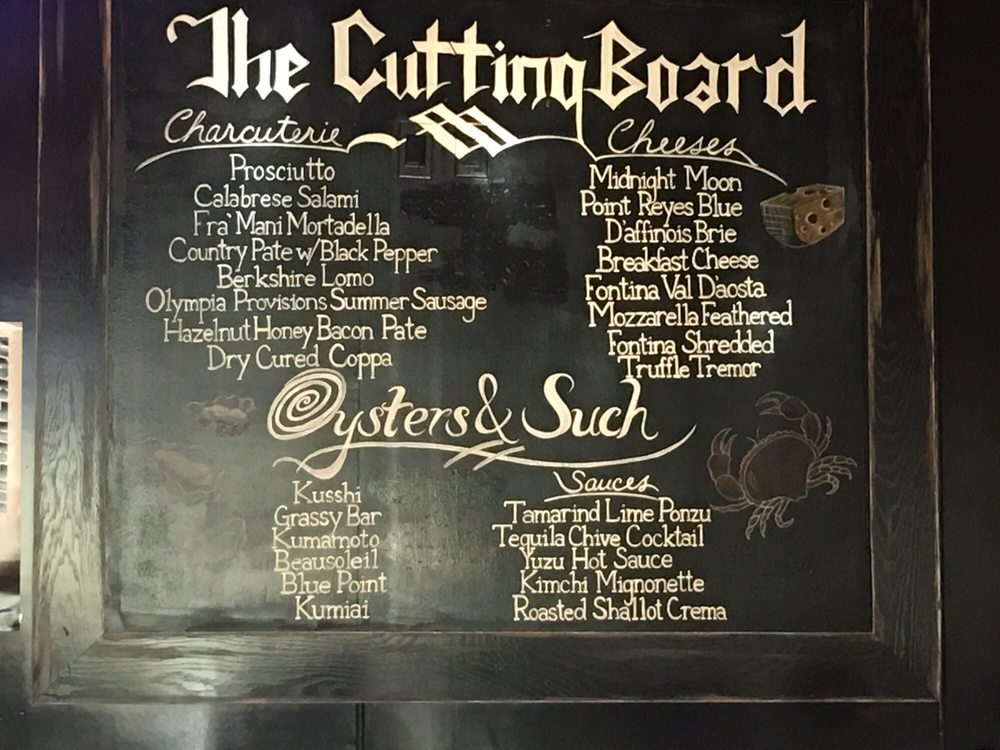 The Cutting Board
Charcuterie
Prosciutto
Calabrese Salami
Fra' Mani Mortadella
Country Pate w/ Black Pepper
Berkshire Lomo
Olympia Provisions Summer Sausage
Hazelnut Honey Bacon Pate
Dry Cured Coppa
Cheeses
Midnight Moon
Point Reyes Blue
D'affinois Brie
Breakfast Cheese
Fontina Val D'aosta
Mozzarella Feathered
Fontina Shredded
Truffle Tremor
Oysters & Such
Kusshi
Grassy Bar
Kumamoto
Beausoleil
Blue Point
Kumiai
Sauces
Tamarind Lime Ponzu
Tequila Chive Cocktail
Yuzu Hot Sauce
Kimchi Mignonette
Roasted Shallot Crema